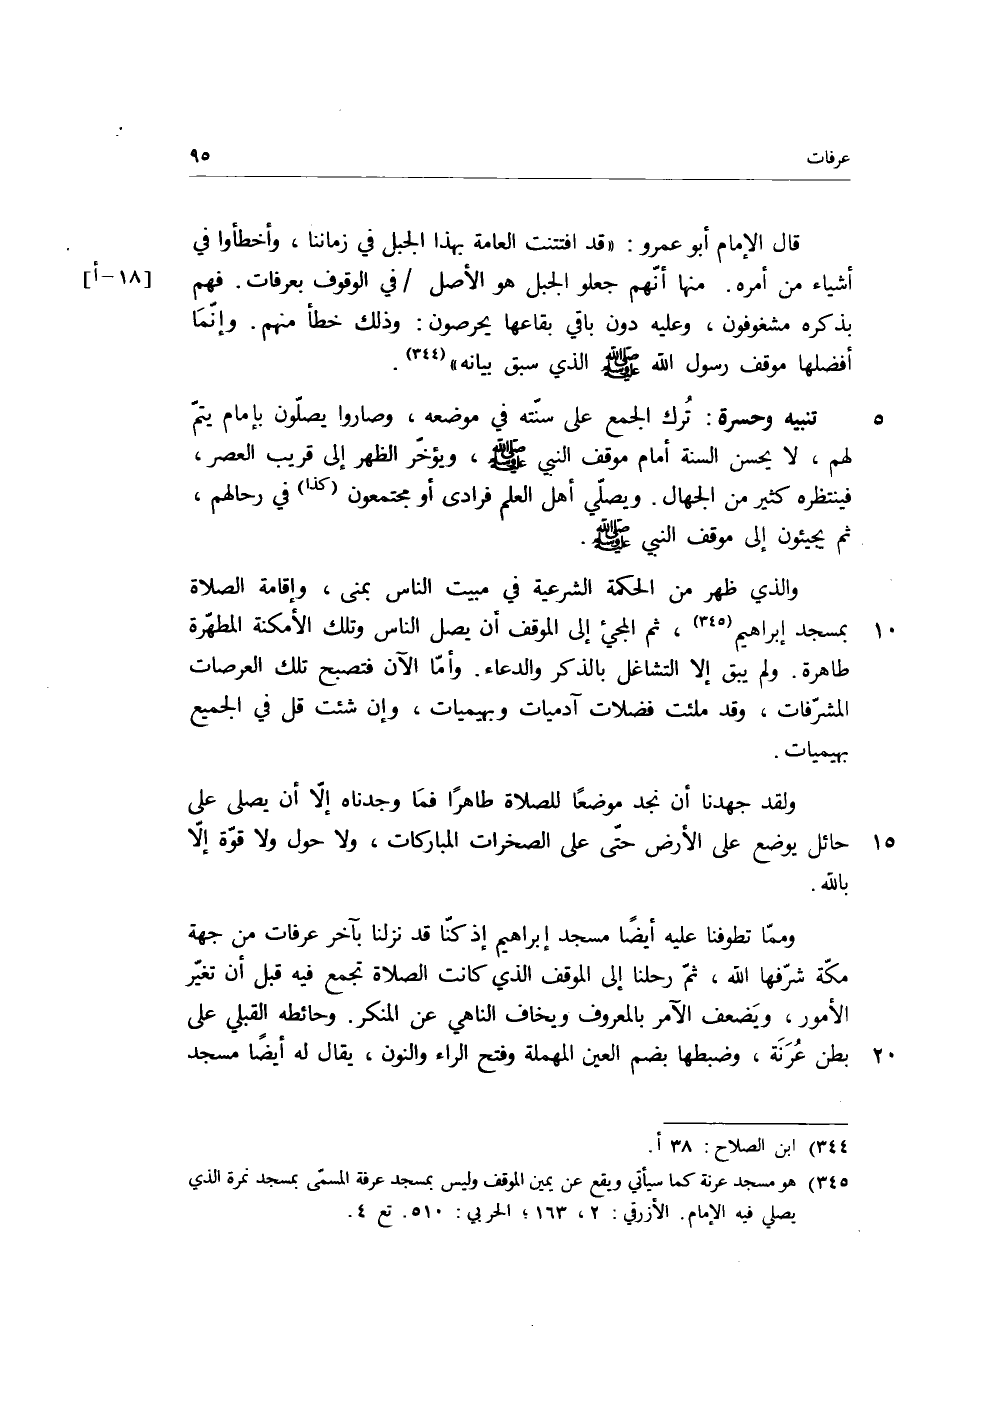 عرفات ٩٥
قال الإمام أبو عمرو : «قد افتتنت العامة بهذا الجبل في زماننا ، وأخطأوا في
أشياء من أمره. منها أنّهم جعلو الجبل هو الأصل / في الوقوف بعرفات. فهم [١٨-أ]
بذكره مشغوفون ، وعليه دون باقي بقاعها يحرصون : وذلك خطأ منهم. وإنّما
أفضلها موقف رسول الله ﷺ الذي سبق بيانه»(٣٤٤).
٥ تنبيه وحسرة : تُرك الجمع على سنّته في موضعه ، وصاروا يصلّون بإمام يتمّ
لهم ، لا يحسن السنة أمام موقف النبي ﷺ ، ويؤخّر الظهر إلى قريب العصر ،
فينتظره كثير من الجهال. ويصلّي أهل العلم فرادى أو مجتمعون (كذا) في رحالهم ،
ثم يجيئون إلى موقف النبي ﷺ.
والذي ظهر من الحكمة الشرعية في مبيت الناس بمنى ، وإقامة الصلاة
١٠ بمسجد إبراهيم(٣٤٥) ، ثم المجئ إلى الموقف أن يصل الناس وتلك الأمكنة المطهّرة
طاهرة. ولم يبق إلا التشاغل بالذكر والدعاء. وأمّا الآن فتصبح تلك العرصات
المشرّفات ، وقد ملئت فضلات آدميات وبهيميات ، وإن شئت قل في الجميع
بهيميات.
ولقد جهدنا أن نجد موضعًا للصلاة طاهرًا فمَا وجدناه إلّا أن يصلى على
١٥ حائل يوضع على الأرض حتّى على الصخرات المباركات ، ولا حول ولا قوّة إلّا
بالله.
وممّا تطوفنا عليه أيضًا مسجد إبراهيم إذ كنّا قد نزلنا بآخر عرفات من جهة
مكّة شرّفها الله ، ثمّ رحلنا إلى الموقف الذي كانت الصلاة تجمع فيه قبل أن تغيّر
الأمور ، ويَضعف الآمر بالمعروف ويخاف الناهي عن المنكر. وحائطه القبلي على
٢٠ بطن عُرَنَة ، وضبطها بضم العين المهملة وفتح الراء والنون ، يقال له أيضًا مسجد
٣٤٤) ابن الصلاح : ٣٨ أ.
٣٤٥) هو مسجد عرنة كما سيأتي ويقع عن يمين الموقف وليس بمسجد عرفة المسمّى بمسجد نمرة الذي
يصلي فيه الإمام. الأزرقي : ٢ ، ١٦٣ ؛ الحربي : ٥١٠. تع ٤.